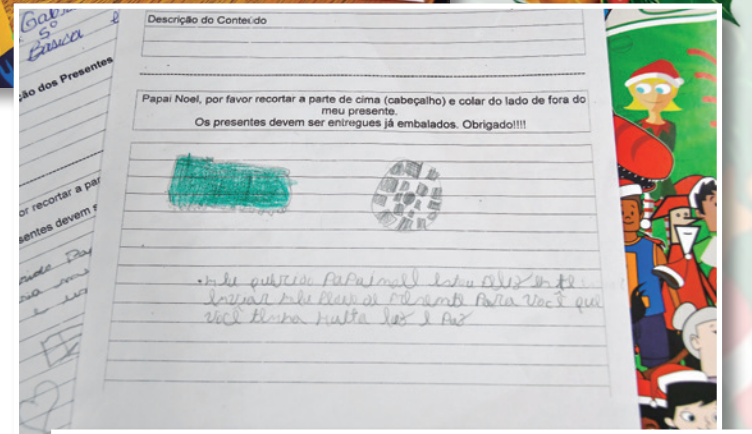 5º
Básica
ão dos Presentes
or recortar a par
sentes devem s
Descrição do Conteúdo
Papai Noel, por favor recortar a parte de cima (cabeçalho) e colar do lado de fora do
meu presente.
Os presentes devem ser entregues já embalados. Obrigado!!!!
querido Papai noel
Para Você que
Você tenha muita luz e Paz